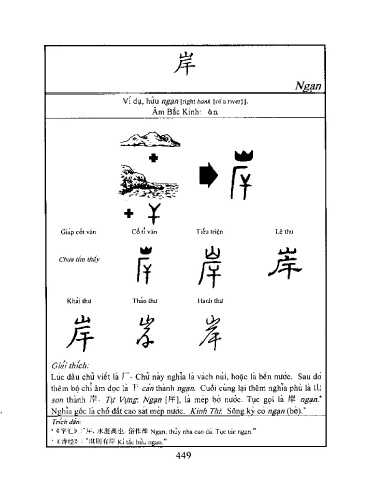 岸
Ngạn
Ví dụ, hữu ngạn [right bank (of a river)].
Âm Bắc Kinh: àn
Giáp cốt văn Cổ tỉ văn Tiểu triện Lệ thu
Chưa tìm thấy
Khải thư Thảo thư Hành thư
岸
Giải thích:
Lúc đầu chữ viết là 厂. Chữ này nghĩa là vách núi, hoặc là bến nước. Sau đó
thêm bộ chỉ âm đọc là 干 cán thành ngạn. Cuối cùng lại thêm nghĩa phù là 山
sơn thành 岸. Tự Vựng: Ngạn [厈], là mép bờ nước. Tục gọi là 岸 ngạn.*
Nghĩa gốc là chỗ đất cao sát mép nước. Kinh Thi: Sông kỳ có ngạn (bờ).*
Trích dẫn:
*《字汇》:"厈, 水崖高也. 俗作岸 Ngạn, thủy nha cao dã. Tục tác ngạn."
*《诗经》: "淇则有岸 Kì tắc hữu ngạn."
449